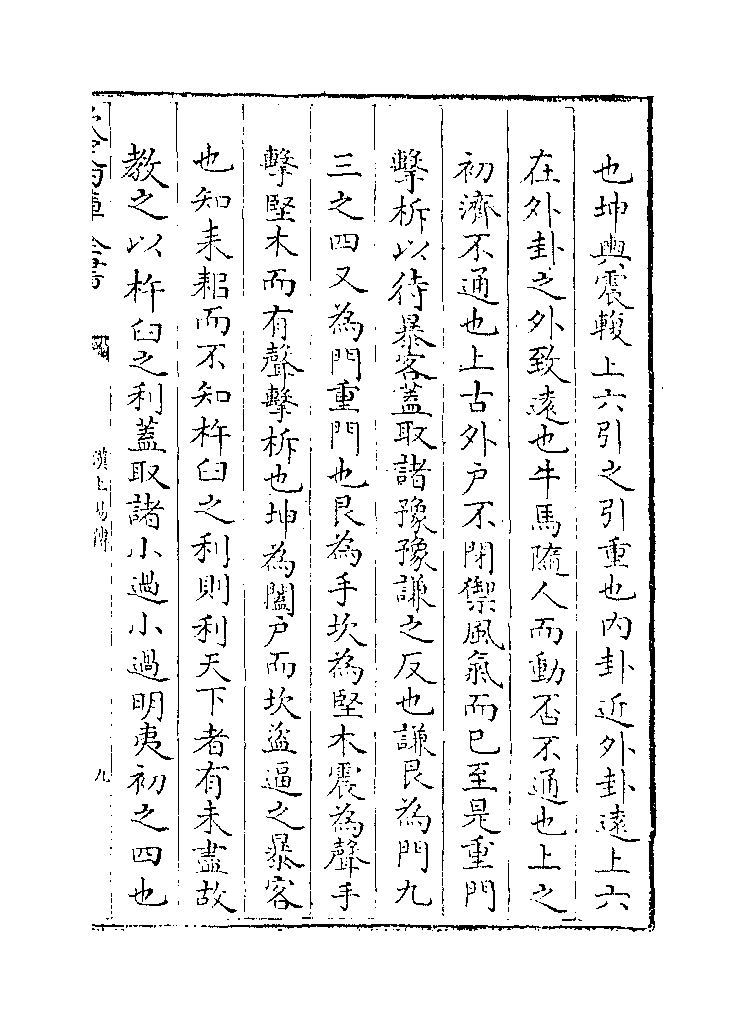 也坤輿震輹上六引之引重也内卦近外卦遠上六
在外卦之外致遠也牛馬隨人而動否不通也上之
初濟不通也上古外户不閉禦風氣而已至是重門
擊柝以待暴客蓋取諸豫豫謙之反也謙艮為門九
三之四又為門重門也艮為手坎為堅木震為聲手
擊堅木而有聲擊柝也坤為闔户而坎盗逼之暴客
也知耒耜而不知杵臼之利則利天下者有未盡故
教之以杵臼之利蓋取諸小過小過明夷初之四也
漢上易傳
九